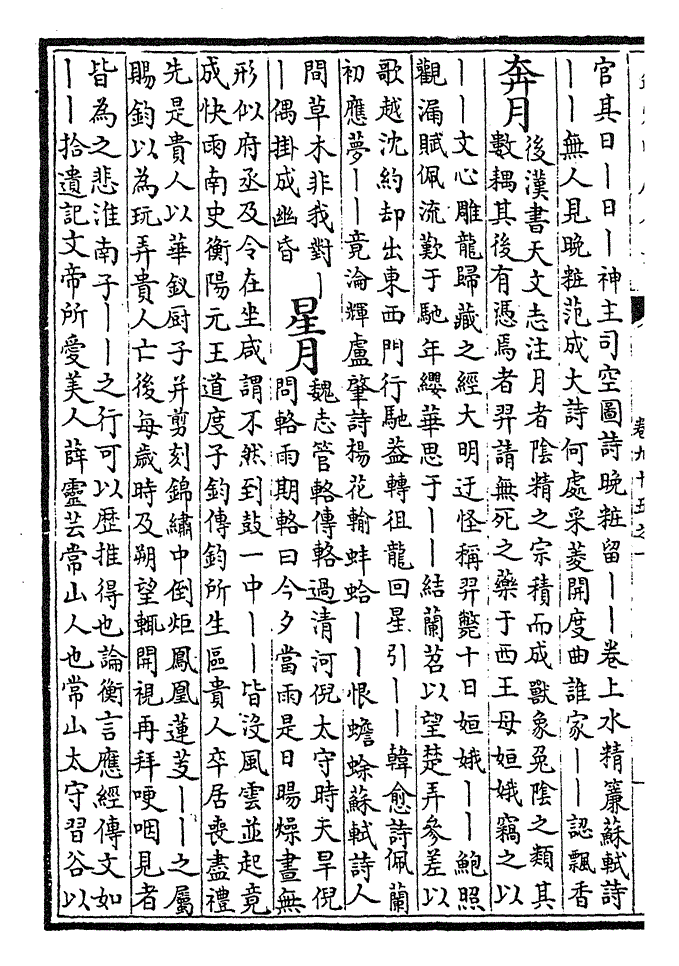 卷九十五之一
官其日丨日丨神主司空圖詩晚粧留丨丨卷上水精簾蘇軾詩
丨丨無人見晚粧范成大詩何處采菱開度曲誰家丨丨認飄香
奔月
後漢書天文志注月者陰精之宗積而成獸象兔陰之類其
數耦其後有憑焉者羿請無死之藥于西王母姮娥竊之以
丨丨文心雕龍歸藏之經大明迂怪稱羿斃十日姮娥丨丨鮑照
觀漏賦佩流歎于馳年纓華思于丨丨結蘭苕以望楚弄參差以
歌越沈約却出東西門行馳葢轉徂龍回星引丨丨韓愈詩佩蘭
初應夢丨丨竟淪輝盧肇詩楊花輸蚌蛤丨丨恨蟾蜍蘇軾詩人
間草木非我對丨
丨偶掛成幽昏
星月
魏志管輅傳輅過清河倪太守時天旱倪
問輅雨期輅曰今夕當雨是日暘燥晝無
形似府丞及令在坐咸謂不然到鼓一中丨丨皆沒風雲並起竟
成快雨南史衡陽元王道度子鈞傳鈞所生區貴人卒居喪盡禮
先是貴人以華釵厨子并剪刻錦繡中倒炬鳳凰蓮芰丨丨之屬
賜鈞以為玩弄貴人亡後每歲時及朔望輒開視再拜哽咽見者
皆為之悲淮南子丨丨之行可以歷推得也論衡言應經傳文如
丨丨拾遺記文帝所愛美人薛靈芸常山人也常山太守習谷以